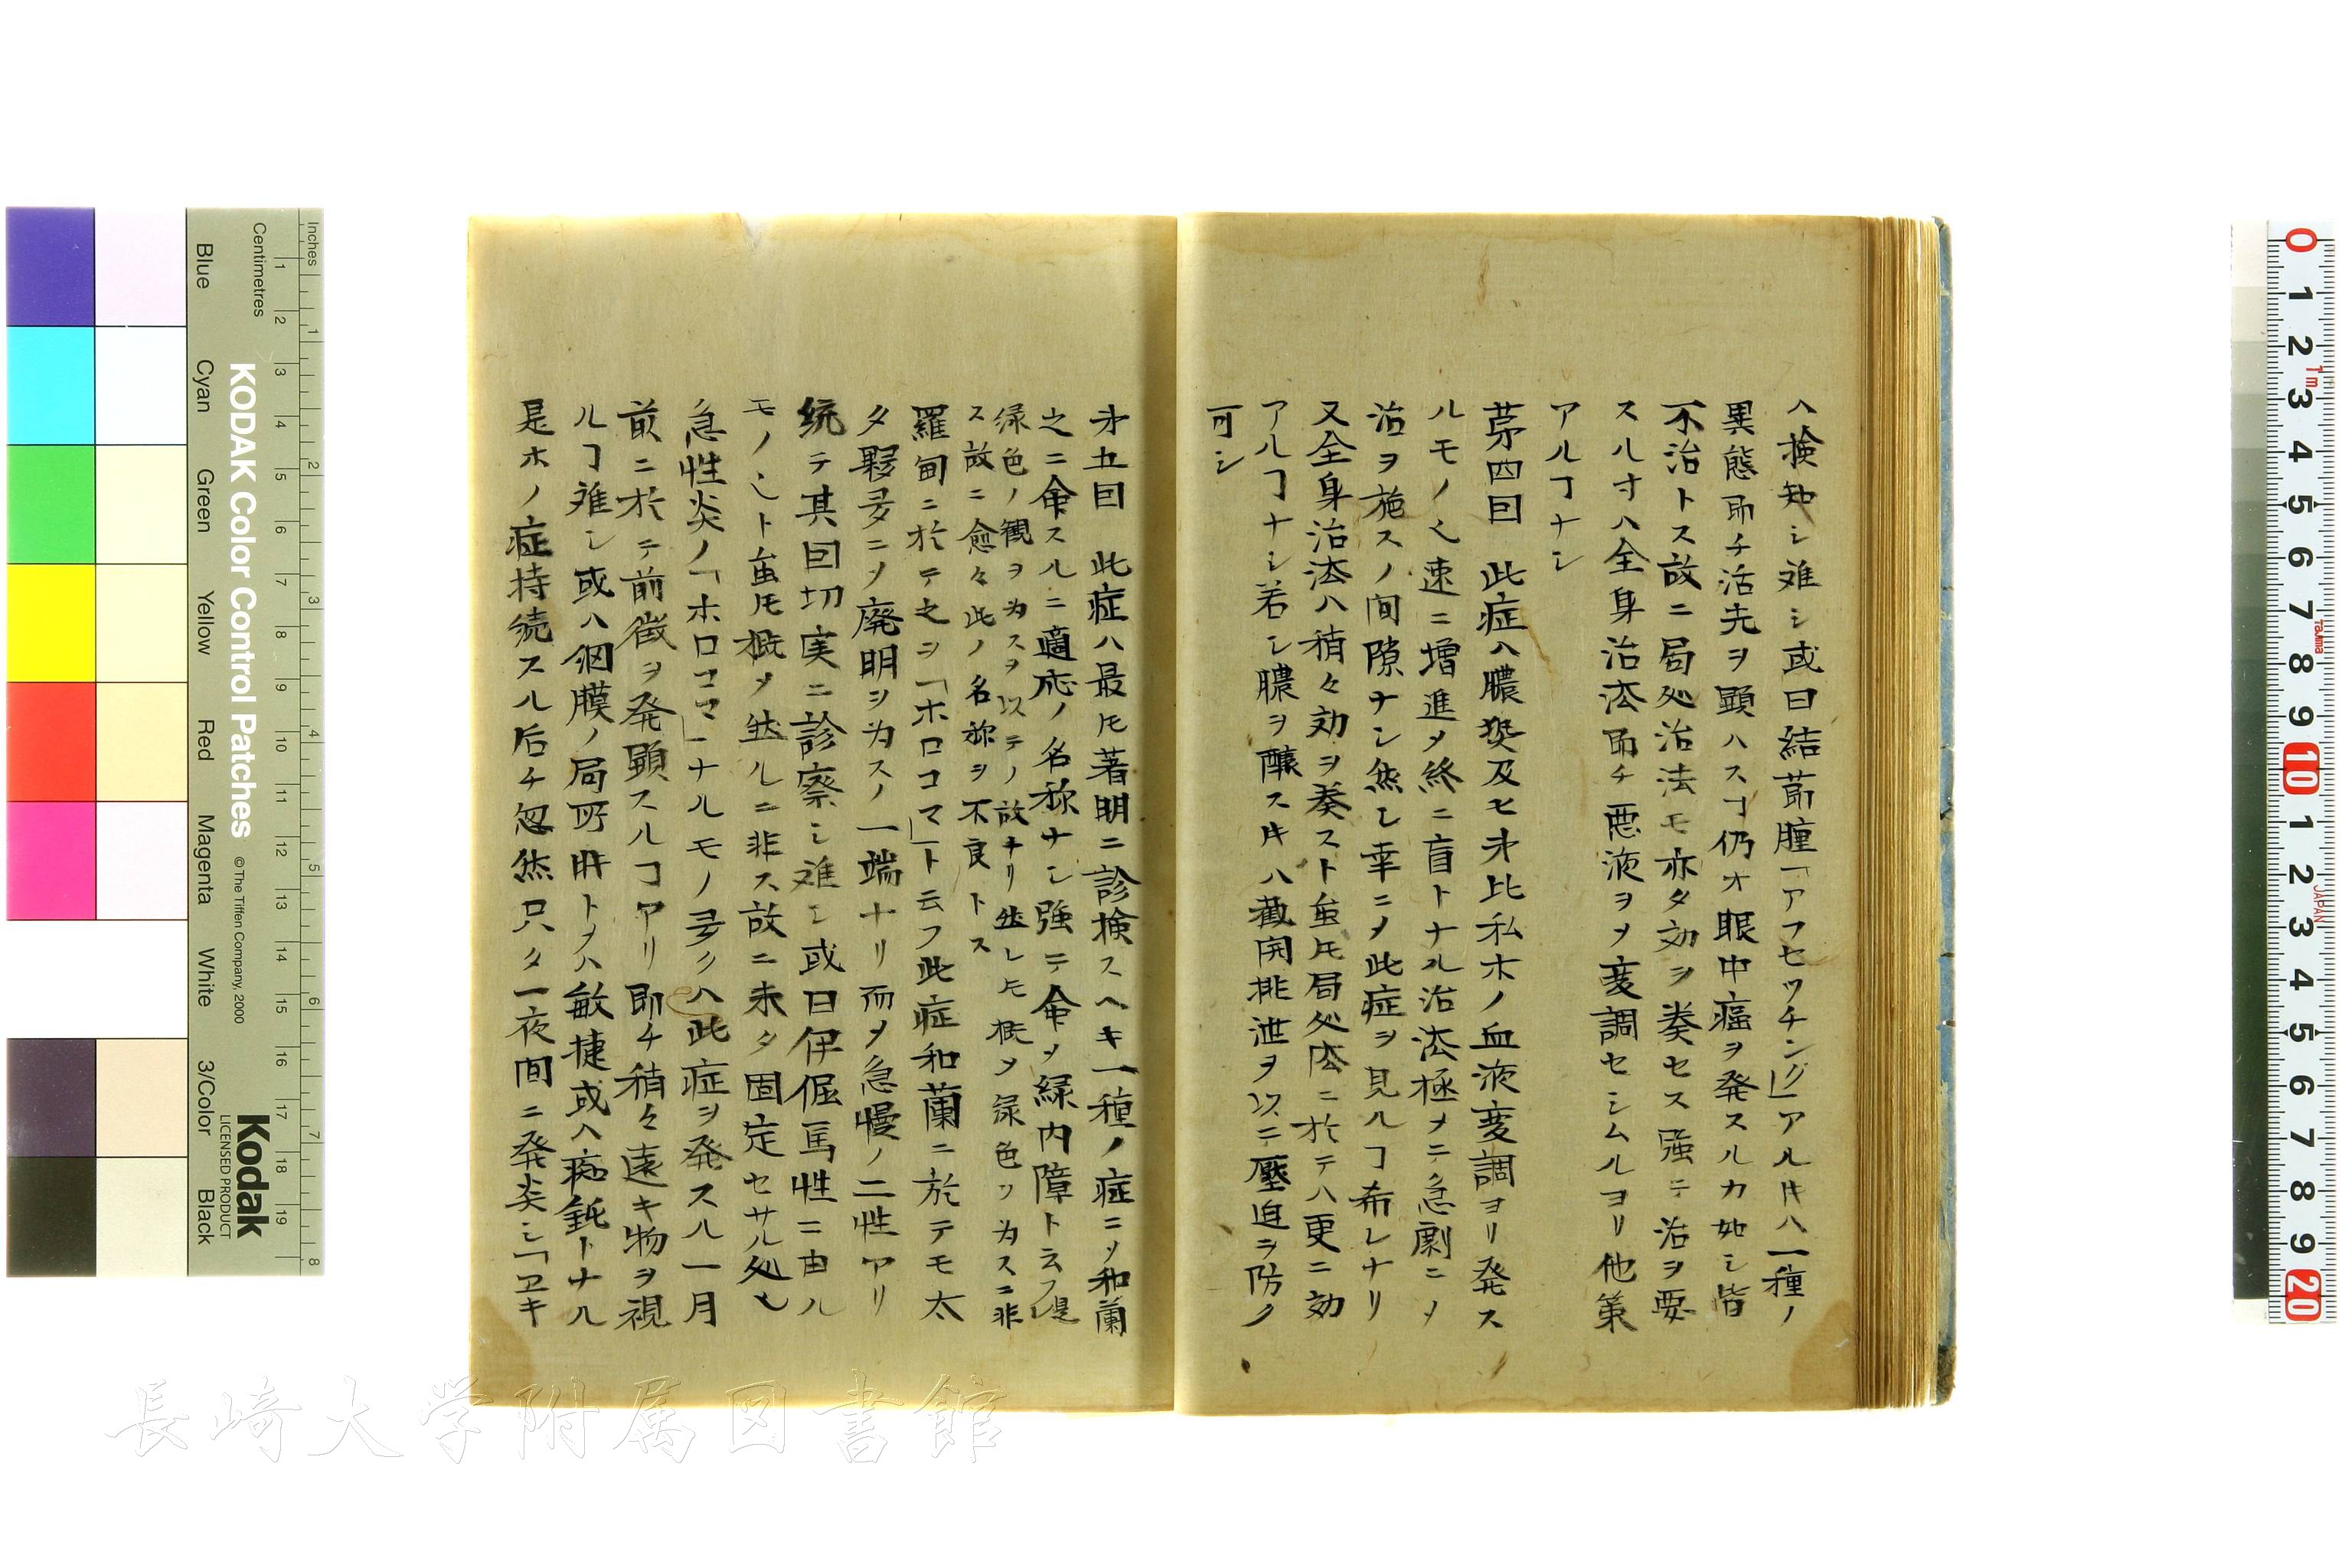 ハ検知シ难シ或曰結節腫「アフセツチング」アル𪜈ハ一種ノ
異態即チ活先ヲ顕ハスヿ仍オ眼中癌ヲ発スルカ如シ皆
不治トス故ニ局処治法モ亦タ効ヲ奏セス强テ治ヲ要
スル寸ハ全身治法即チ悪液ヲメ変調セシムルヨリ他策
アルヿナシ
茅四回 此症ハ膿瘍及ヒ才比私ホノ血液変調ヨリ発ス
ルモノ也速ニ増進メ終ニ盲トナル治法極メテ急劇ニメ
治ヲ施スノ間隙ナシ然レ𪜈幸ニメ此症ヲ見ルヿ希レナリ
又全身治法ハ稍々効ヲ奏スト虽𪜈局処法ニ於テハ更ニ効
アルヿナシ若シ膿ヲ醸ス𪜈ハ截開排泄ヲ以テ壓迫ヲ防ク
可シ
才五回 此症ハ最𪜈著明ニ診検スヘキ一種ノ症ニメ和蘭
之ニ命スルニ適応ノ名称ナシ强テ命メ緑内障ト云フ是レ
緑色ノ観ヲ为スヲ以テノ故ナリ然レ𪜈概メ緑色ヲ为スニ非
ス故ニ愈々此ノ名称ヲ不良トス
羅甸ニ於テ之ヲ「ホロコマ」ト云フ此症和蘭ニ於テモ太
タ夥多ニメ廃明ヲ为スノ一端ナリ而メ急慢ノ二性アリ
統テ其回切実ニ診察シ难シ或曰伊倔馬性ニ由ル
モノ也ト虽𪜈概メ然ルニ非ス故ニ未タ固定セサル処也
急性炎ノ「ホロコマ」ナルモノ多クハ此症ヲ発スル一月
前ニ於テ前徴ヲ発顕スルヿアリ即チ稍々遠キ物ヲ視
ルヿ难シ或ハ網膜ノ局所時トメハ敏捷或ハ痴鈍トナル
是ホノ症持続スル后チ忽然只タ一夜間ニ発炎シ「ヱキ
KODAK Color Control Patches
©The Tiffen Company, 2000
Kodak
LICENSED PRODUCT
Inches
Centimetres
Blue
Cyan
Green
Yellow
Red
Magenta
White
3/Color
Black
長崎大学附属図書館